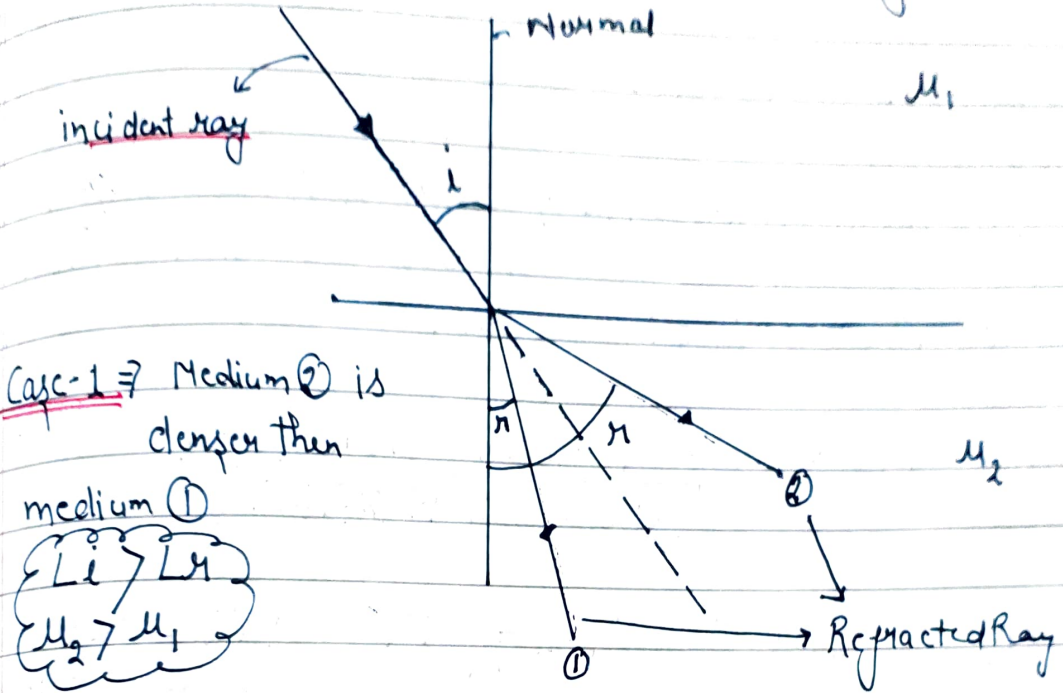 Normal
μ₁
incident ray
i
Case-1 ⇒ Medium ② is
denser then
medium ①
∠i > ∠r
μ₂ > μ₁
r
r
μ₂
②
Refracted Ray
①